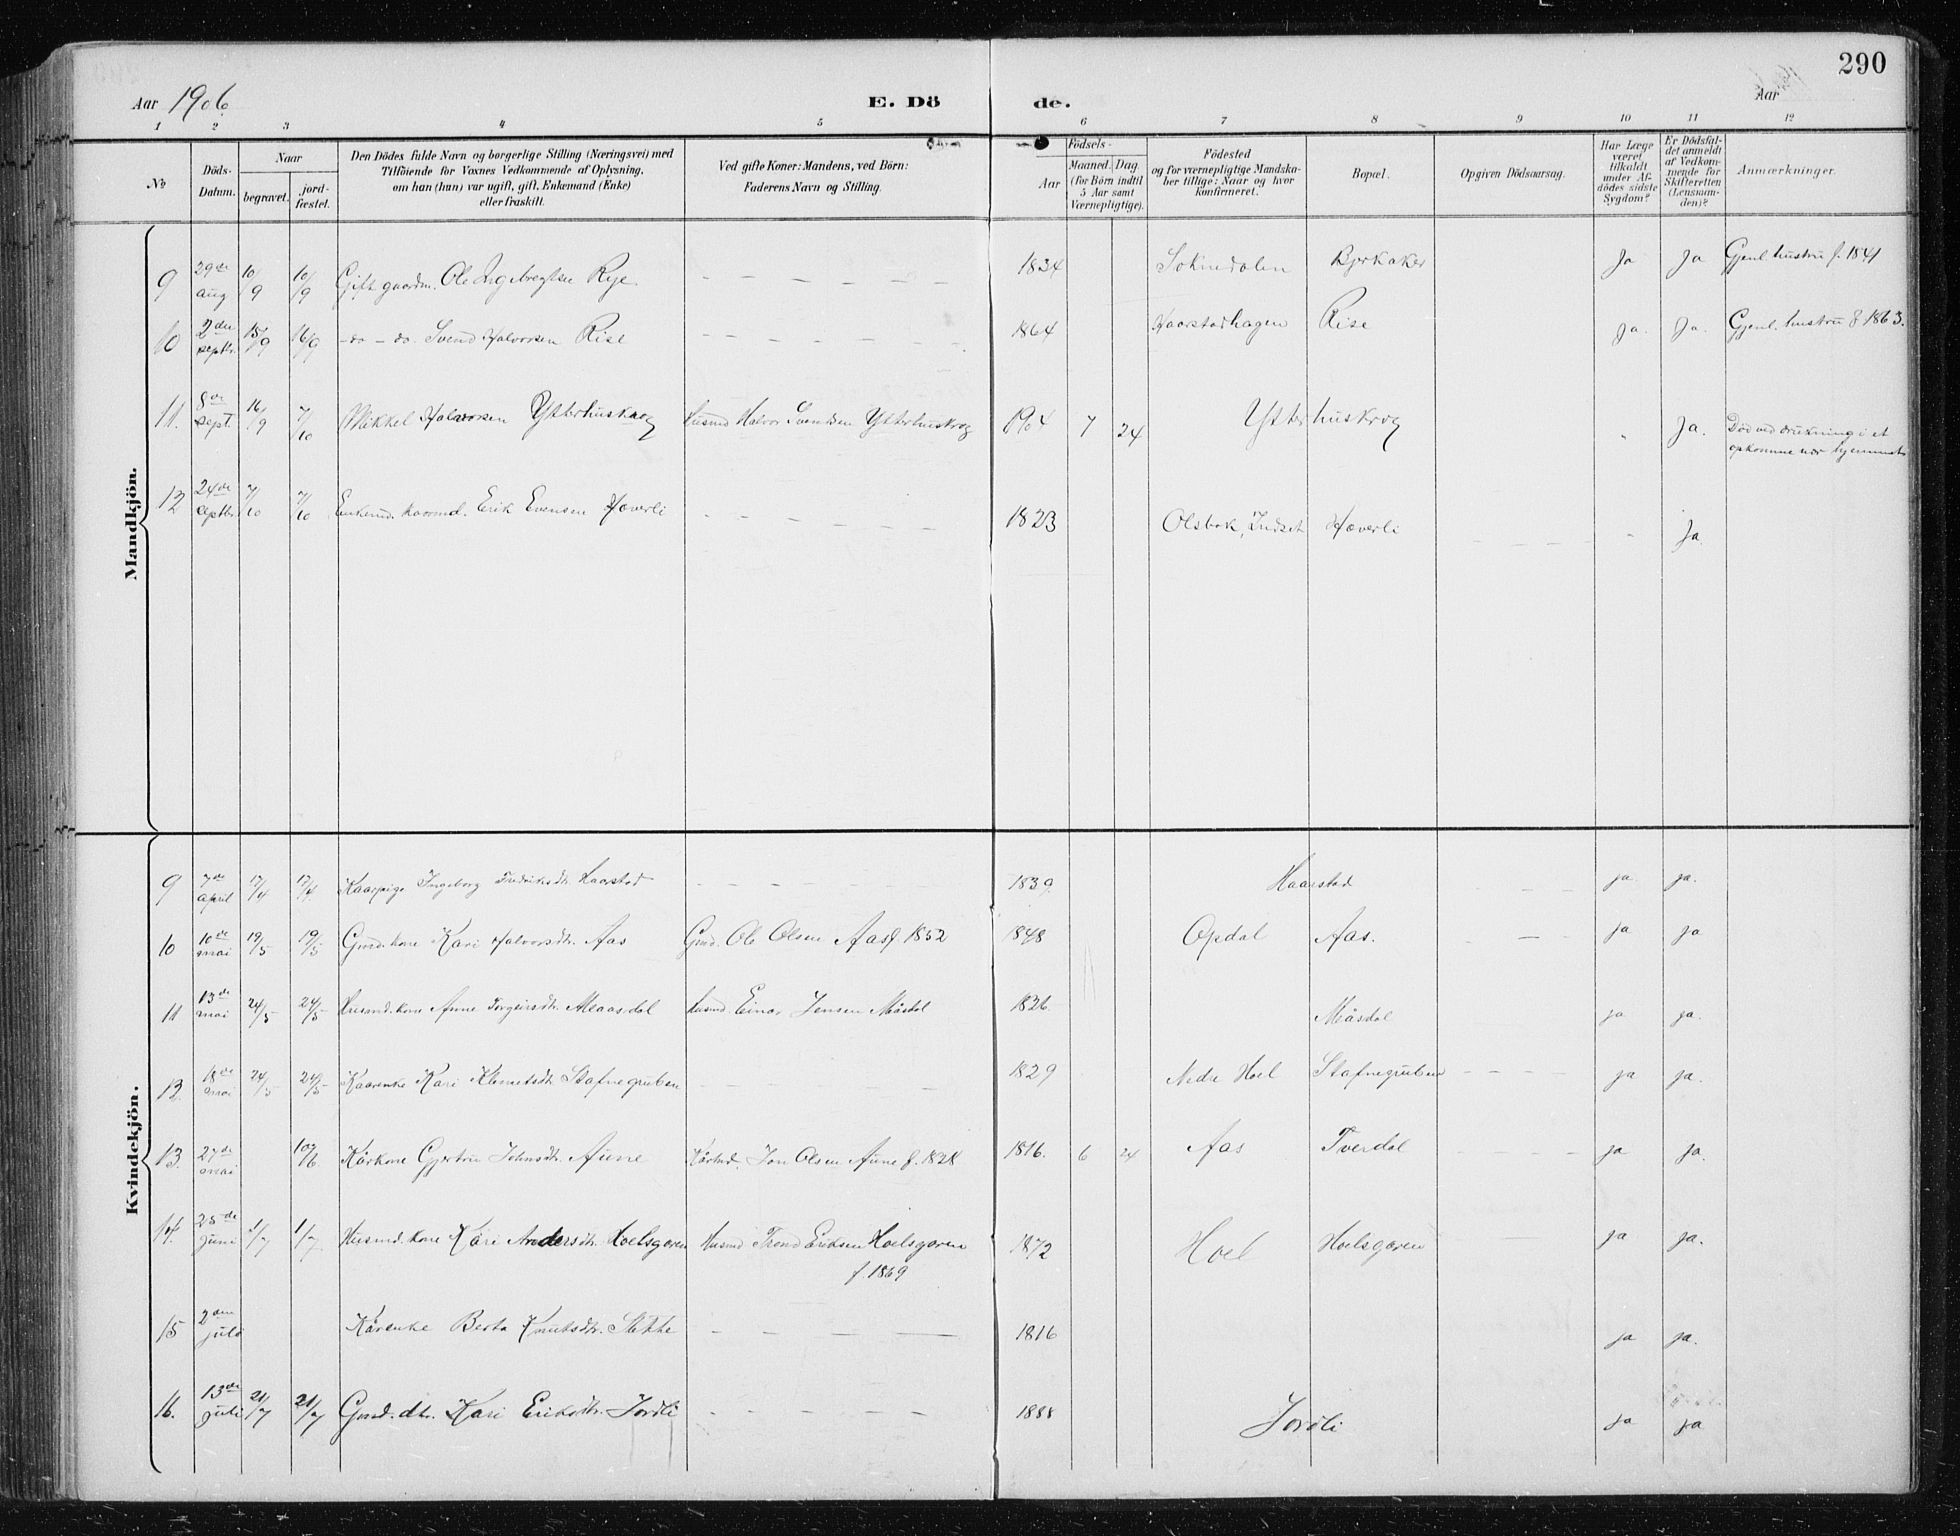 290
Aar 1906. E. Dö de. Aar
1 2 3 4 5 6 7 8 9 10 11 12
No Döds-Datum. Naar begravet. jord-fæstet. Den Dödes fulde Navn og borgerlige Stilling (Næringsvei) med Tilföiende for Voxnes Vedkommende af Oplysning, om han (hun) var ugift, gift, Enkemand (Enke) eller fraskilt. Ved gifte Koner: Mandens, ved Börn: Faderens Navn og Stilling. Födsels- Aar Maaned. Dag (for Börn indtil 5 Aar samt Værnepligtige). Födested og for værnepligtige Mandskaber tillige: Naar og hvor konfirmeret. Bopæl. Opgiven Dödsaarsag. Har Læge været tilkaldt under Afdödes sidste Sygdom? Er Dödsfaldet anmeldt af Vedkommende for Skifteretten (Lensmanden)? Anmærkninger.
Mandkjön.
9 29de aug 10/9 10/9 Gift gaardm. Ole Ingebregtsen Rye. – – – – – 1834 Soknedalen Bjerkaker Ja Ja Gjenl. hustru f. 1841
10 2den septbr. 15/9 16/9 -do-do. Svend Halvorsen Rise – – – – – 1864 Haarstadhagen Rise Ja. Ja. Gjenl. hustru f 1863.
11. 8de sept. 16/9 7/10 Mikkel Halvorsen Ytterhuskrog Husmd Halvor Svendsen Ytterhuskrog 1904 7 24 Ytterhuskrog " Ja. Död ved drukning i et opkomme nær hjemmet
12 24de septbr. 7/10 7/10 Enkemd. kaarmd. Erik Evensen Hæverli – – – – – 1823 Olsbak, Indset Hæverli – – – – - Ja.
Kvindekjön.
9 7de april 17/4 17/4. Kaarpige Ingeborg Fredriksdtr. Haarstad – – – – 1839. Haarstad – – – ja. ja.
10 10de mai 19/5 19/5 Gmd.kone Kari Halvorsdtr. Aas Gmd. Ole Olsen Aas f 1852 1848 Opdal Aas. — ja ja
11 13de mai 24/5 24/5 Husmd.kone Anne Torgeirsdtr. Maasdal Husmd. Einar Jensen Måsdal 1826. Måsdal ja ja.
12 18de mai 24/5 24/5 Kaarenke Kari Klemetsdtr. Stafnegruben – 1829 Nedre Hoel Stafnegruben – – – – ja ja.
13. 27de mai 10/6 Kårkone Gjertru Johnsdtr. Aune Kårmd. Jon Olsen Aune f. 1828 1816. 6 24 Aas Tverdal – – – – ja ja.
14. 25de juni 1/7 1/7 Husmd.kone Kari Andersdtr. Hoelsgaren Husmd Trond Eriksen Hoelsgaren 1872 Hoel Hoelsgaren ja ja.
f. 1869
15 2den juli Kårenke Berta Knutsdtr. – – – – 1816 ja ja.
16. 13de juli 21/7 21/7 Gmd.dtr. Kari Eriksdtr. Jordli – – – – 1888 Jordli ja ja